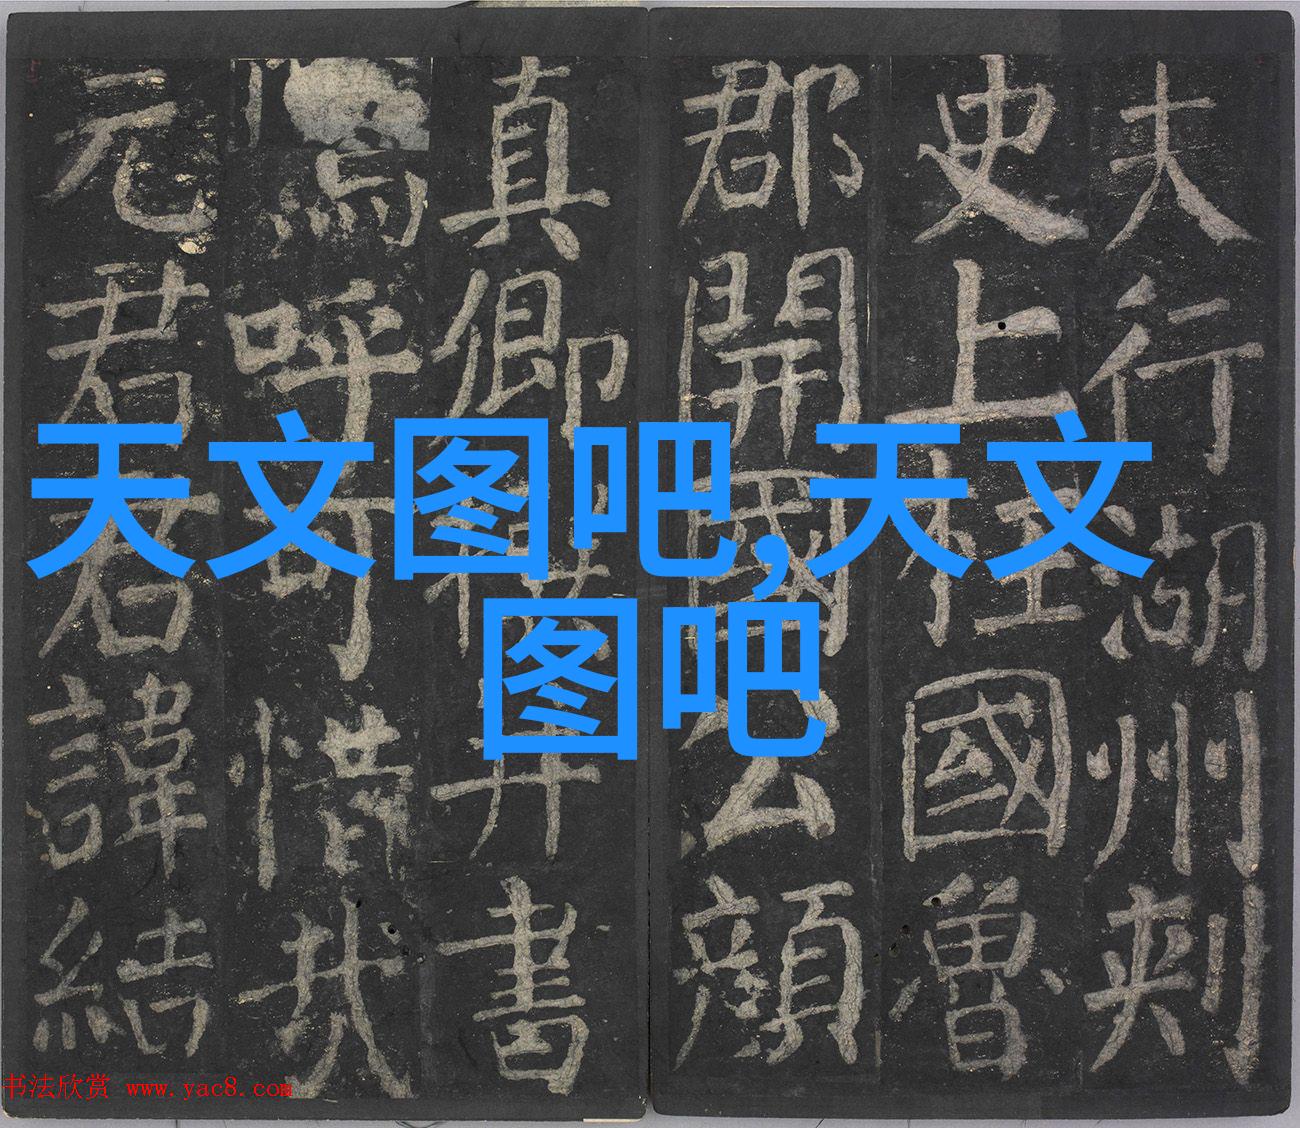 夫行湖州刺
史上柱國魯
郡開國公顔
真卿撰并書
嗚呼可惜哉
元君君諱結
天文图吧,天文
图吧
书法欣赏 www.yac8.com